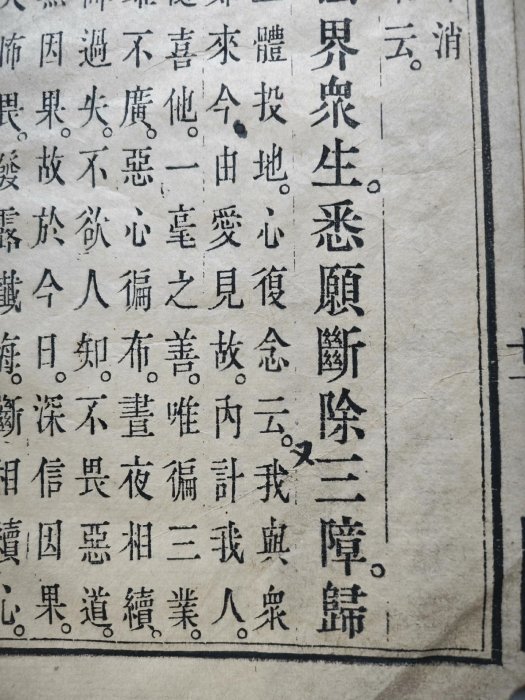 消
云。
界衆生。悉願斷除三障。歸
體投地。心復念云。我與衆
又
來今由愛見故。內計我人。
喜他。一毫之善。唯徧三業。
不廣。惡心徧布。晝夜相續。
過失。不欲人知。不畏惡道。
因果。故於今日。深信因果。
怖畏。發露懺悔。斷相續心。
十二